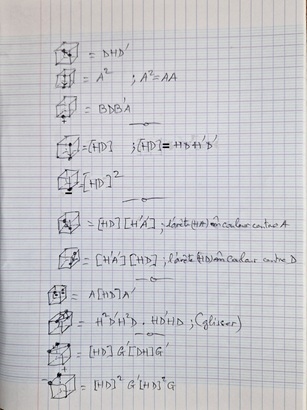 = DHD'
= A² ; A²=AA
= BDB'A
=[HD] ; [HD] = HDH'D'
=[HD]²
= [HD][H'A'] ; l'arête (HA) m̂ couleur centre A
= [H'A'][HD] ; l'arête (HD) m̂ couleur centre D
= A[HD]A'
= H²D'H²D . HD'HD ; (glisser)
= [HD] G'[DH]G'
= [HD]² G'[HD]²G